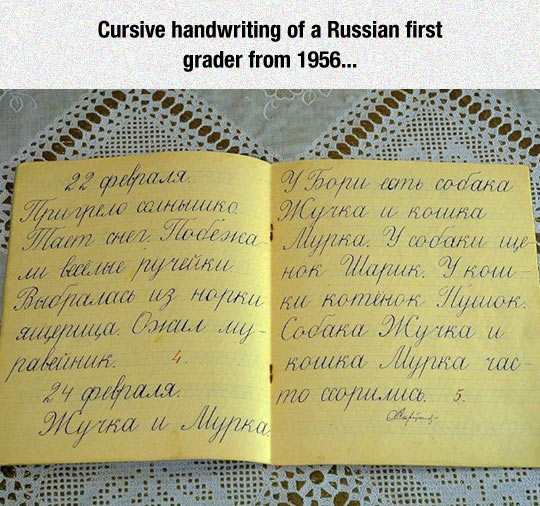 Cursive handwriting of a Russian first
grader from 1956...
22 февраля.
Пригрело солнышко.
Тает снег. Побежа-
ли весёлые ручейки.
Выбралась из норки
ящерица. Ожил му-
равейник. 4.
24 февраля.
Жучка и Мурка.
У Бори есть собака
Жучка и кошка
Мурка. У собаки ще-
нок Шарик. У кош-
ки котёнок Пушок.
Собака Жучка и
кошка Мурка час-
то ссорились. 5.